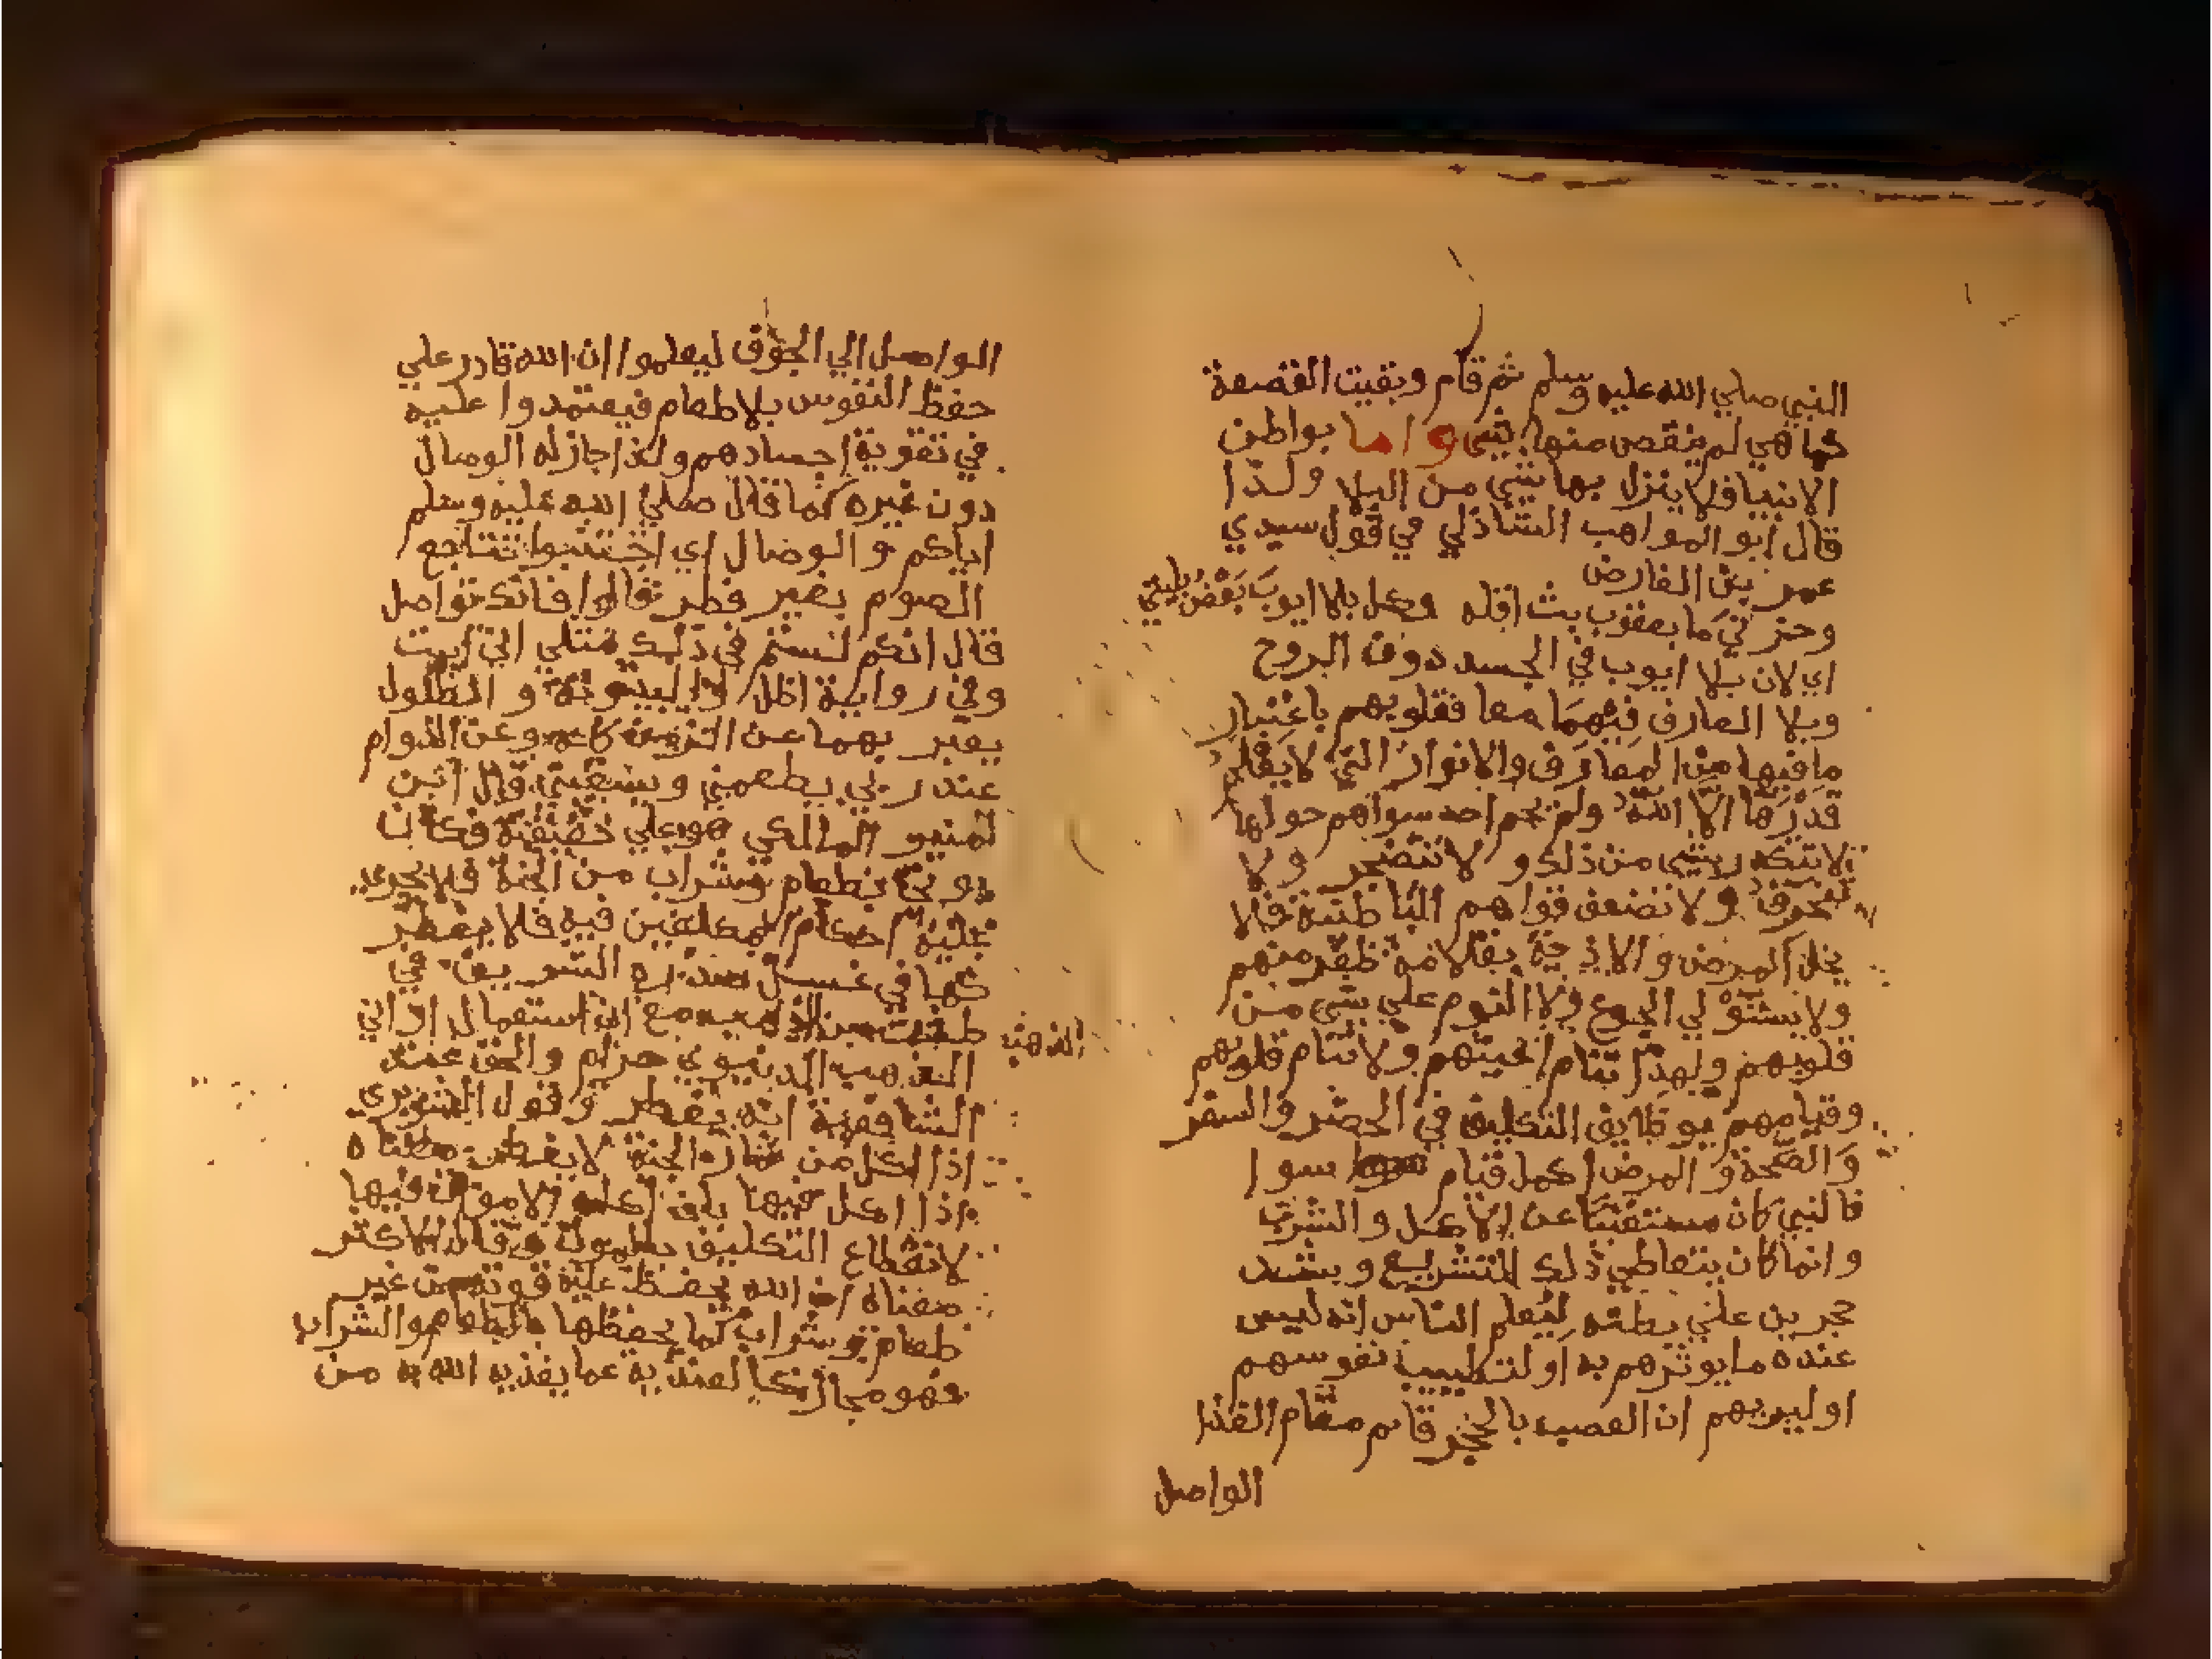 النبي صلي الله عليه وسلم ثم قام وبقيت القصعة
كما هي لم ينقص منها شي واما بواطن
الانبيا فلا ينزل بها شي من البلا ولذا
قال ابو المواهب الشاذلي في قول سيدي
عمر بن الفارض
وحزني ما يعقوب بث اقله وكل بلا ايوب بعض بليتي
اي لان بلا ايوب في الجسد دون الروح
وبلا العارف فيهما معا فقلوبهم باعتبار
ما فيها من المعارف والانوار التي لا يعلم
قدرها الا الله ولم يحم احد سواهم حولها
لا تتكدر بشي من ذلك ولا تتضجر ولا
ولا تضعف قواهم الباطنة فلا
يخل المرض والاذية بقلامة ظفر منهم
ولا يستولي الجوع ولا النوم علي شي من
قلوبهم ولهذا تنام اعينهم ولا تنام قلوبهم
وقيامهم بوظايف التكليف في الحضر والسفر
والصحة والمرض اكمل قيام سوا
فالنبي كان مستغنيا عن الاكل والشرب
وانما كان يتعاطي ذلك للتشريع ويشد
حجر بن علي بطنه ليعلم الناس انه ليس
عنده ما يوثرهم به او لتطييب نفوسهم
او ليريهم ان العصب بالحجر قايم مقام الغذا
الواصل
الواصل الي الجوف ليعلموا ان الله قادر علي
حفظ النفوس بلا طعام فيعتمدوا عليه
في تقوية اجسادهم ولذا جاز له الوصال
دون غيره كما قال صلي الله عليه وسلم
اياكم والوصال اي اجتنبوا تتابع
الصوم بغير فطر قالوا فانك تواصل
قال انكم لستم في ذلك مثلي اني ابيت
وفي رواية اظل والبيتوتة والظلول
يعبر بهما عن الزمن كله وعن الدوام
عند ربي يطعمني ويسقيني قال ابن
المنير المالكي هو علي حقيقته فكان
يوتي بطعام وشراب من الجنة فلا يجري
عليه احكام المكلفين فيه فلا يفطر
كما في غسل صدره الشريف في
طشت من الذهب مع ان استعمال اواني
الذهب الدنيوي حرام والحق عند
الشافعية انه يفطر وقول
اذا اكل من ثمار الجنة لا يفطر معناه
اذا اكل فيها
لانقطاع التكليف بالموت وقال الاكثر
معناه ان الله يحفظ عليه قوته من غير
طعام وشراب كما يحفظها بالطعام والشراب
فهو مجاز عما يغذيه الله به من